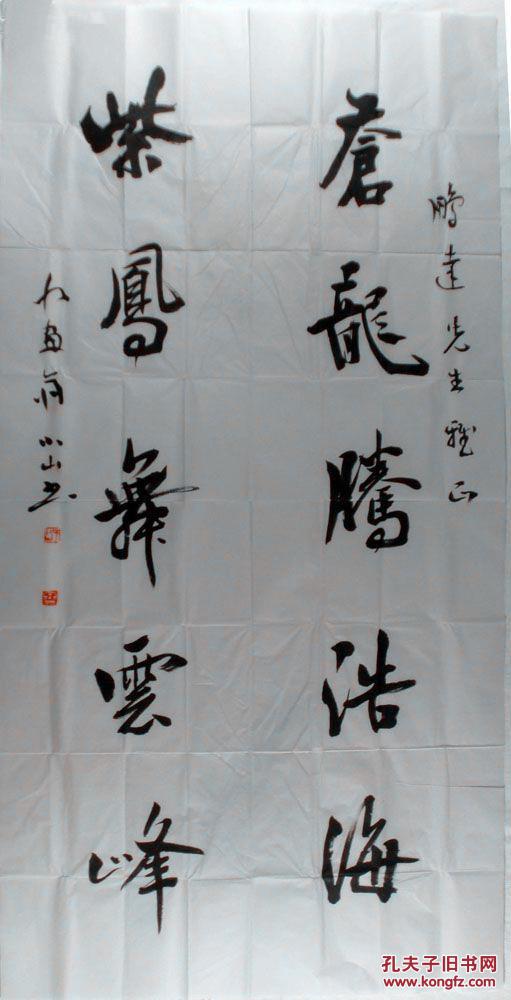 鵬達先生雅正
蒼龍騰浩海
紫鳳舞雲峰
小山书
孔夫子旧书网
www.kongfz.com